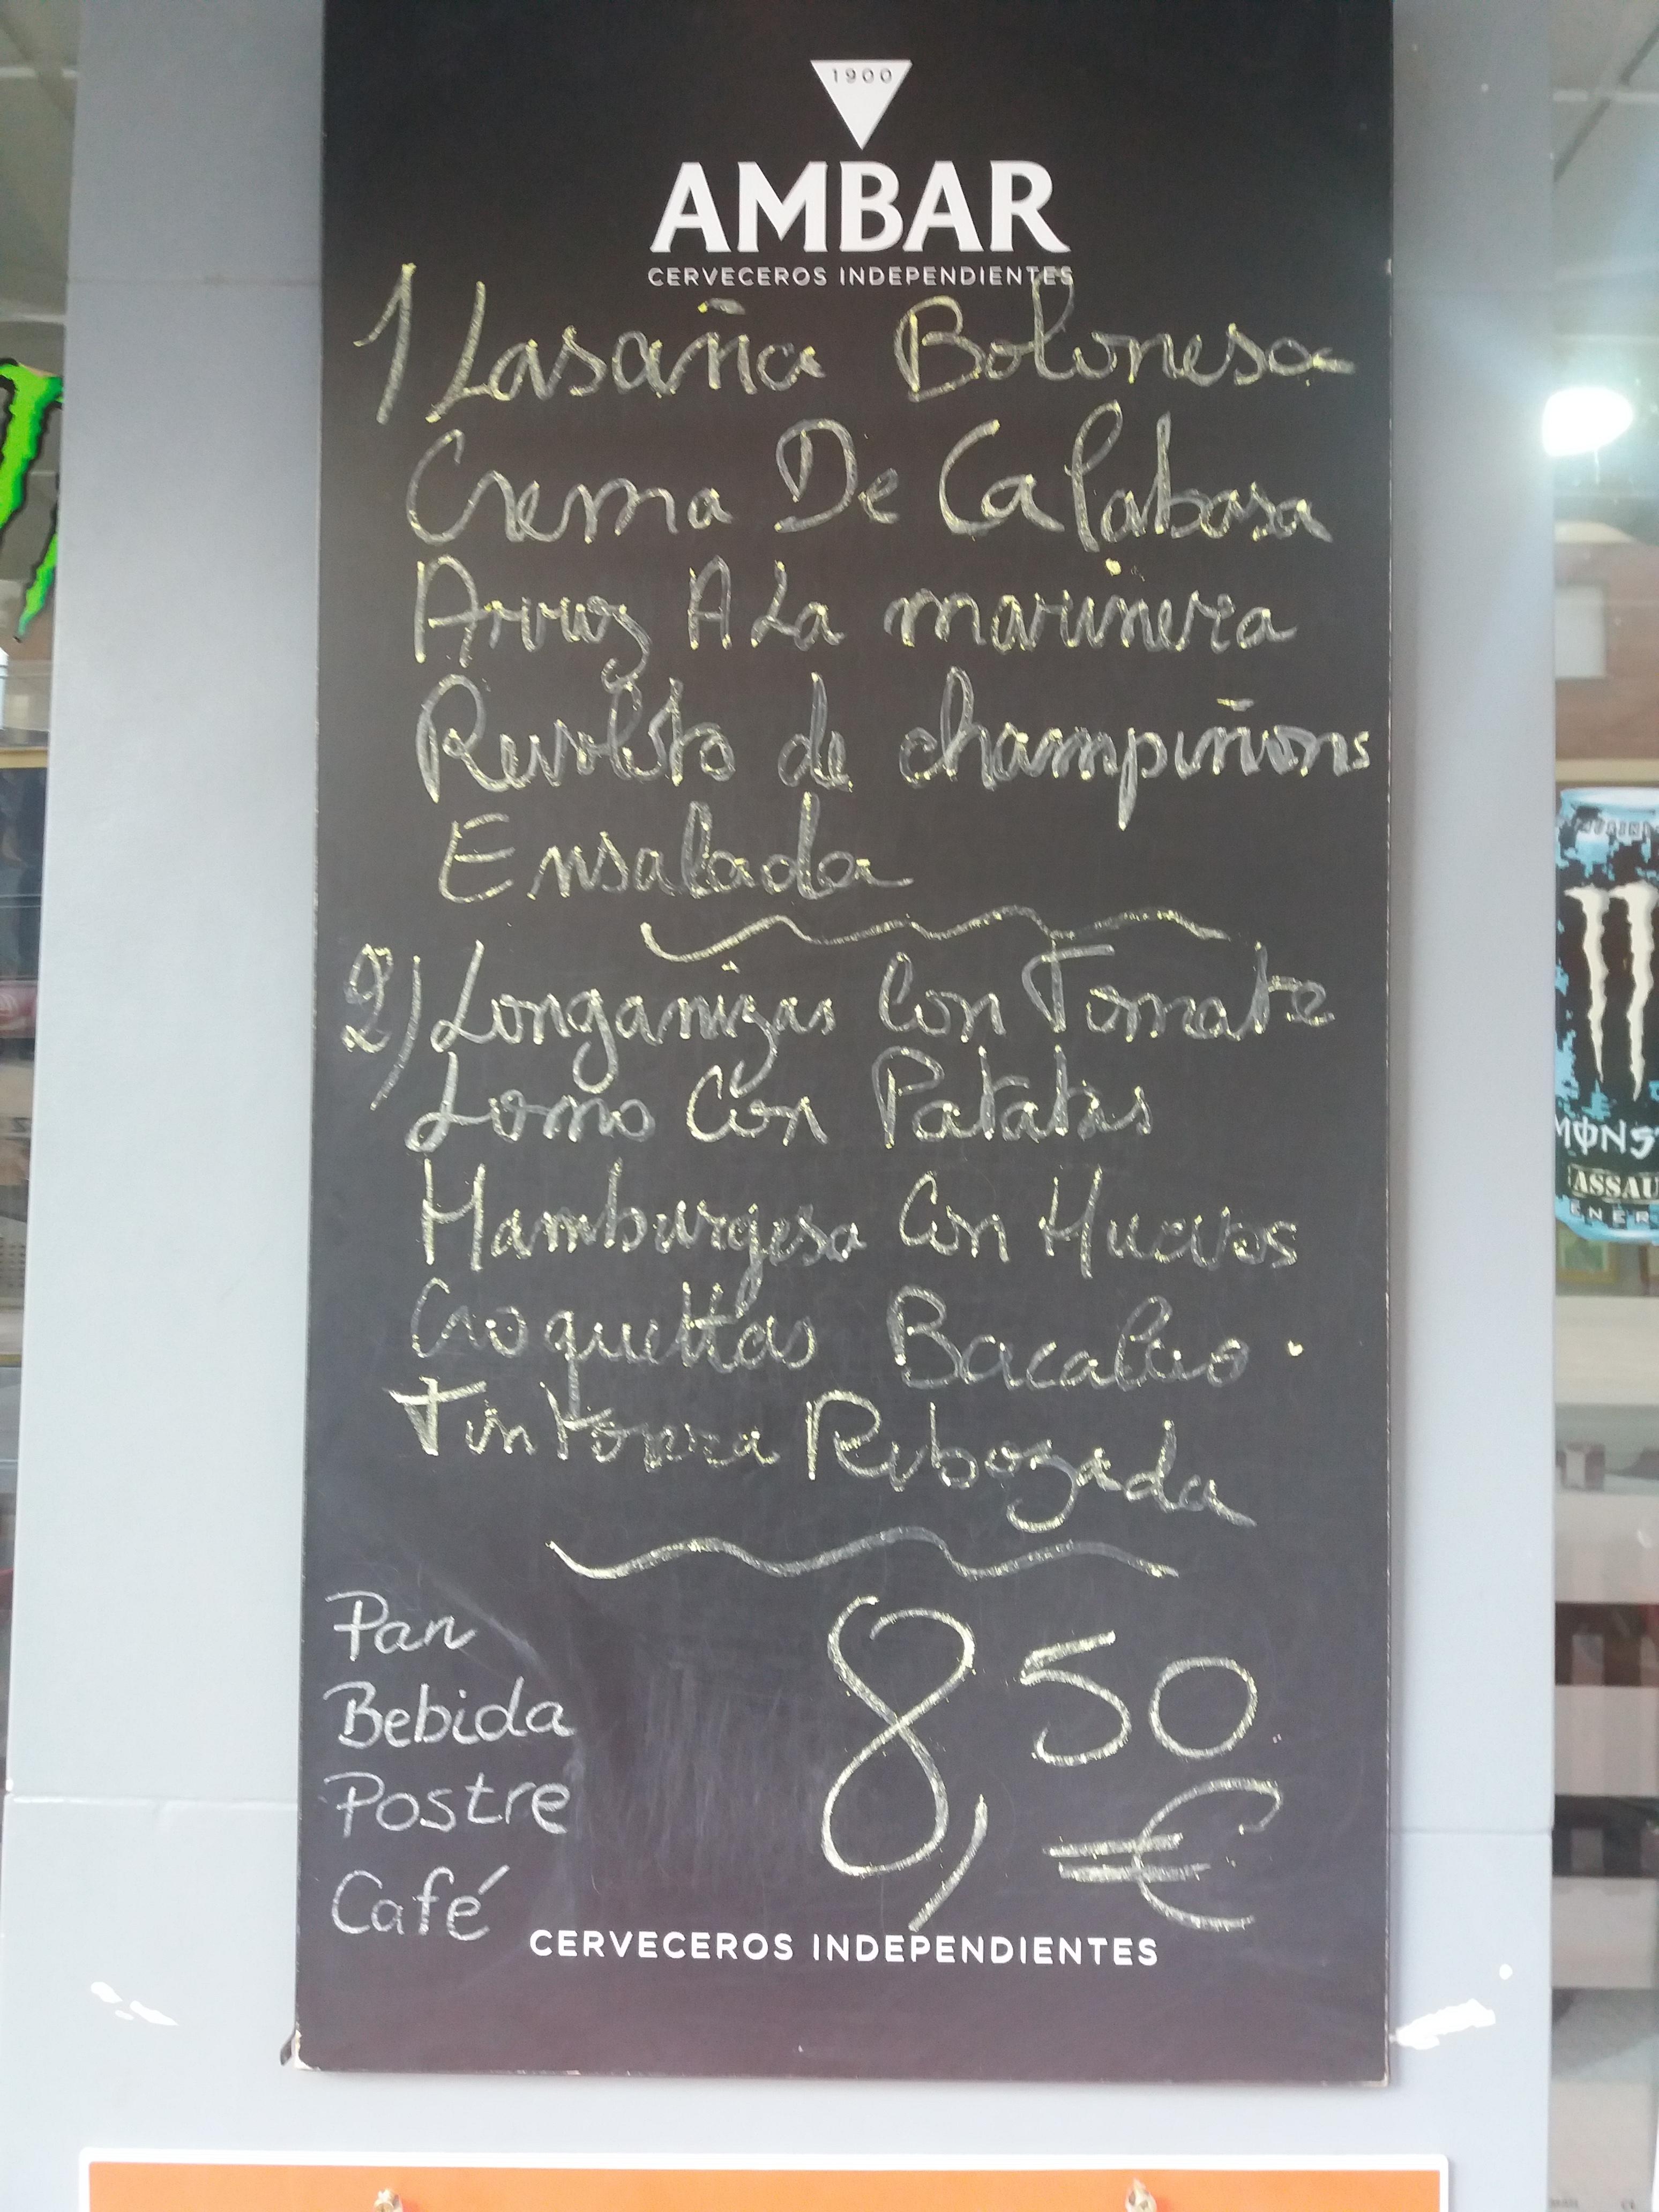 1900
AMBAR
CERVECEROS INDEPENDIENTES
1) Lasaña Bolonesa
Crema De Calabasa
Arroz A La marinera
Revolto de champiñons
Ensalada
2) Longanizas Con Tomate
Lomo Con Patatas
Hamburgesa Con Huevos
Croquettas Bacalao.
Tintorera Rebozada
Pan
Bebida
Postre
Café
8,50
€
CERVECEROS INDEPENDIENTES
MONS
ASSAU
ENER